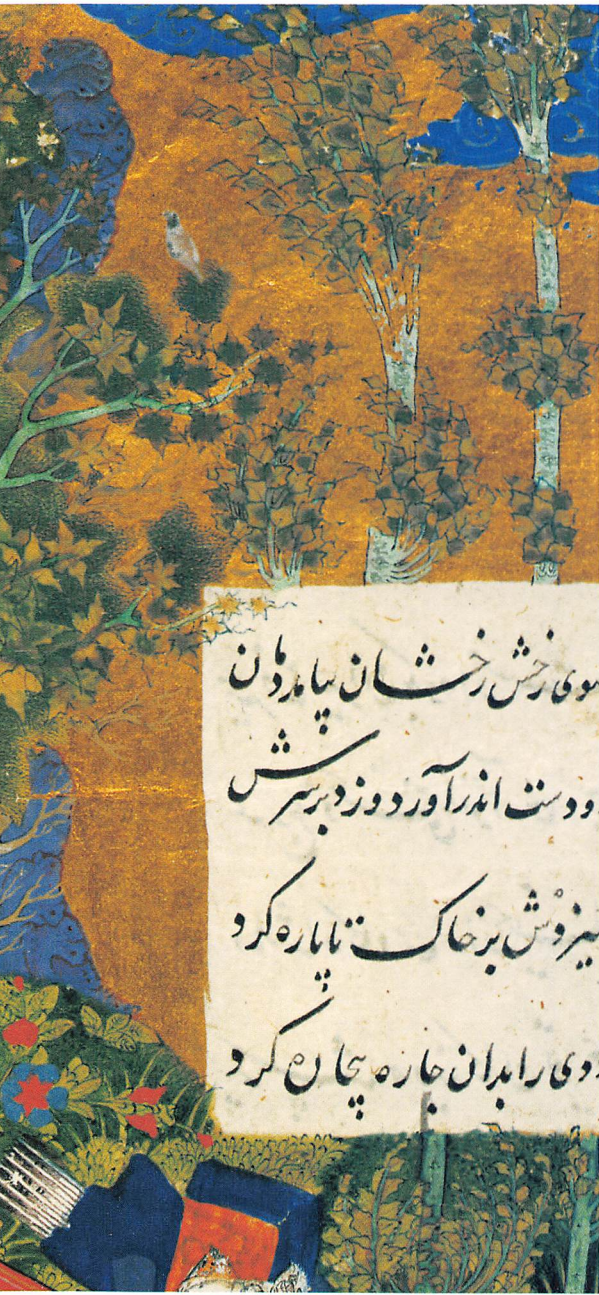 سوی رخش رخشان بیامد دمان
دو دست اندر آورد و زد بر سرش
میزدش بر خاک تا پاره کرد
ددی را بدان چاره بیچاره کرد